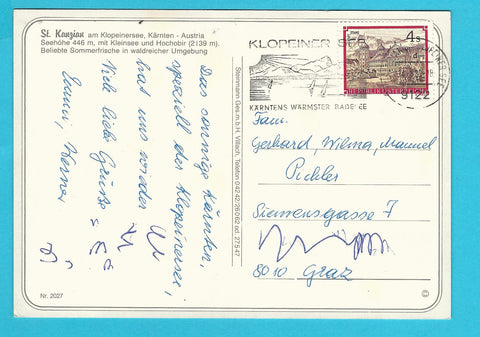 St. Kanzian am Klopeinersee, Kärnten - Austria
Seehöhe 446 m, mit Kleinsee und Hochobir (2139 m).
Beliebte Sommerfrische in waldreicher Umgebung
Das sonnige Kärnten,
speziell der Klopeinersee,
hat uns wieder
Viele liebe Grüße
Emmi, Werner
Nr. 2027
Steinmann Ges.m.b.H. Villach, Telefon 04242/28062 od. 27547
KLOPEINER SEE
KÄRNTENS WÄRMSTER BADESEE
9122
4 S
REPUBLIK ÖSTERREICH
Fam.
Gerhard, Wilma, Manuel
Pichler
Siemensgasse 7
8010 Graz
©